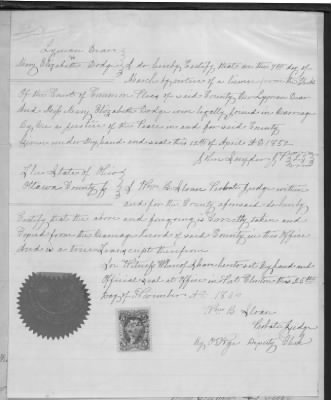 Lyman Crane
Mary Elizabeth Dodge } I do hereby Certify that on the 7th day of
March by virtue of a license from the Clerk
Of the Court of Common Pleas of said County the Lyman
And Miss Mary Elizabeth Dodge were legally joined in Marriage
By me a Justice of the Peace in and for said County
Given under my hand and seal this 12th of April A D 1852
John Snyder J P
The State of Ohio
Ottawa County } I Wm B. Sloan Probate Judge within
and for the County aforesaid do hereby
Certify that the above and foregoing is Correctly taken and
Copied from the Marriage Record of said County in this Office
And is a true transcript therefrom
In Witness Whereof I have hereunto set my hand and
Official Seal at Office in Port Clinton this 26th
Day of November A D
Wm B Sloan
Probate Judge
By Deputy Clerk